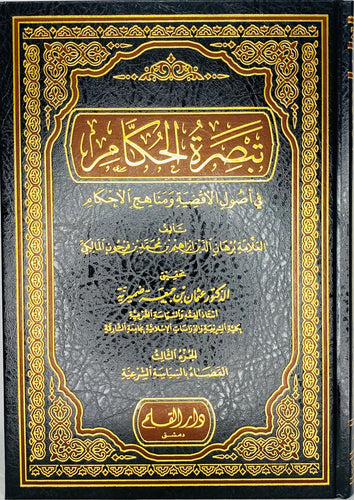 تبصرة الحكام
في أصول الأقضية ومناهج الأحكام
تأليف
العلامة برهان الدين إبراهيم بن محمد بن فرحون المالكي
تحقيق
الدكتور عثمان بن جمعة ضميرية
أستاذ الفقه والسياسة الشرعية
بكلية الشريعة والدراسات الإسلامية بجامعة الشارقة
الجزء الثالث
القضاء بالسياسة الشرعية
دار القلم
دمشق